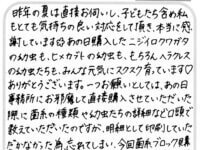 昨年の夏は直接お伺いし、子どもたち含め私
もとても気持ちの良い対応をして頂き、本当に感
謝しています☺あの日購入したニジイロクワガタ
の幼虫も、ヒメカブトの幼虫も、もちろんヘラクレス
の幼虫たちも、みんな元気にスクスク育っています♡
ありがとうございます。一つお願いとしては、あの日
事務所にお邪魔して直接購入させていただいた
際に菌糸の種類や幼虫たちの詳細など口頭で
教えていただいたのですが、明細として印刷していた
だかなかった為、忘れてしまい、今回菌糸ブロック購